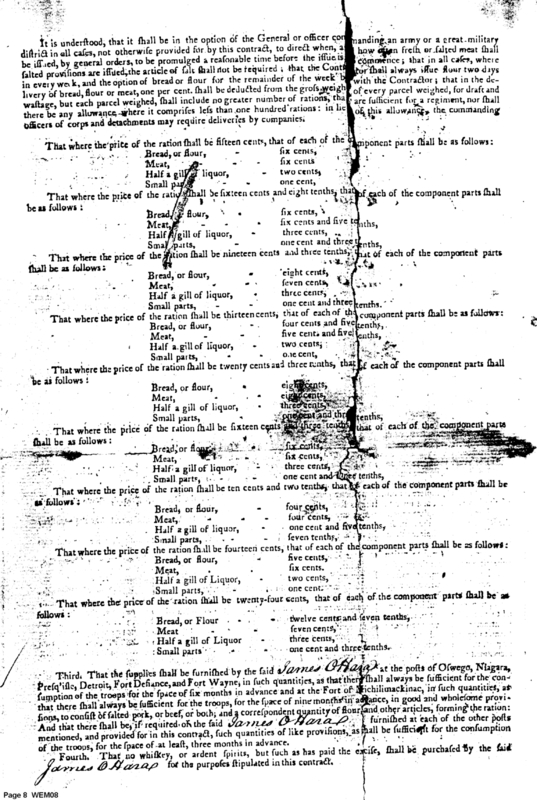 It is understood, that it shall be in the option of the General or officer commanding an army or a great military
district in all cases, not otherwise provided for by this contract, to direct when, a how often fresh or salted meat shall
be issued, by general orders, to be promulged a reasonable time before the issue is commence; that in all cases, where
salted provisions are issued, the article of salt shall not be required; that the Contractor shall always issue flour two days
in every week, and the option of bread or flour for the remainder of the week with the Contractor; that in the delivery
livery of bread, flour or meat, one per cent. shall be deducted from the gross weight of every parcel weighed, for draft and
wastage, but each parcel weighed, shall include no greater number of rations, tha are sufficient for a regiment, nor shall
there be any allowance where it comprises less than one hundred rations: in lie of this allowance, the commanding
officers of corps and detachments may require deliveries by companies.
That where the price of the ration shall be fifteen cents, that of each of the component parts shall be as follows:
Bread, or flour, - six cents,
Meat, - six cents
Half a gill of liquor, - two cents,
Small parts - one cent,
That where the price of the ration shall be sixteen cents and eight tenths, that of each of the component parts shall
be as follows:
Bread, or flour, - six cents,
Meat, - six cents and five tenths,
Half a gill of liquor, - three cents,
Small parts, - one cent and three tenths,
That where the price of the ration shall be nineteen cents and three tenths, that of each of the component parts
shall be as follows:
Bread, or flour, - eight cents,
Meat, - seven cents,
Half a gill of liquor, - three cents,
Small parts, - one cent and three tenths.
That where the price of the ration shall be thirteen cents, that of each of the component parts shall be as follows:
Bread, or flour, - four cents and five tenths,
Meat, - five cents and five tenths,
Half a gill of liquor, - two cents,
Small parts, - one cent,
That where the price of the ration shall be twenty cents and three tenths, that of each of the component parts shall
be as follows:
Bread, or flour, - eight cents,
Meat, - eight cents,
Half a gill of liquor, - three cents,
Small parts, - one cent and three tenths,
That where the price of the ration shall be sixteen cents and three tenths, that of each of the component parts
shall be as follows:
Bread, or flour, - six cents,
Meat, - six cents,
Half a gill of liquor, - three cents,
Small parts, - one cent and three tenths,
That where the price of the ration shall be ten cents and two tenths, that of each of the component parts shall be
as follows:
Bread, or flour, - four cents,
Meat, - four cents,
Half a gill of liquor, - one cent and five tenths,
Small parts, - seven tenths,
That where the price of the ration shall be fourteen cents, that of each of the component parts shall be as follows:
Bread, or flour, - five cents,
Meat, - six cents.
Half a gill of Liquor, - two cents,
Small parts, - one cent.
That where the price of the ration shall be twenty-four cents, that of each of the component parts shall be as
follows:
Bread, or Flour - twelve cents and seven tenths,
Meat - seven cents,
Half a gill of Liquor - three cents,
Small parts - one cent and three-tenths.
Third. That the supplies shall be furnished by the said James O Hara at the posts of Oswego, Niagara,
Presq'isle, Detroit, Fort Defiance, and Fort Wayne, in such quantities, as that there shall always be sufficient for the con-
sumption of the troops for the space of six months in advance and at the Fort of Michilimackinac, in such quantities, as
that there shall always be sufficient for the troops, for the space of nine months in advance, in good and wholesome provi-
sions, to consist of salted pork, or beef, or both; and a correspondent quantity of flour and other articles, forming the ration:
And that there shall be, if required of the said James O Hara furnished at each of the other posts
mentioned, and provided for in this contract, such quantities of like provisions, as shall be sufficient for the consumption
of the troops, for the space of at least, three months in advance.
Fourth. That no whiskey, or ardent spirits, but such as has paid the excise, shall be purchased by the said
James O Hara for the purposes stipulated in this contract.
Page 8 WEM08